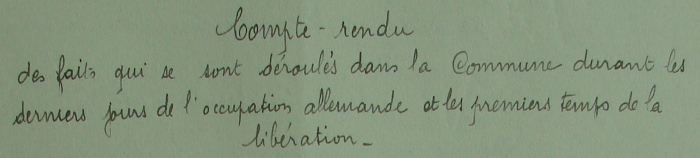 Compte-rendu
des faits qui se sont déroulés dans la Commune durant les
derniers jours de l'occupation allemande et les premiers temps de la
libération_